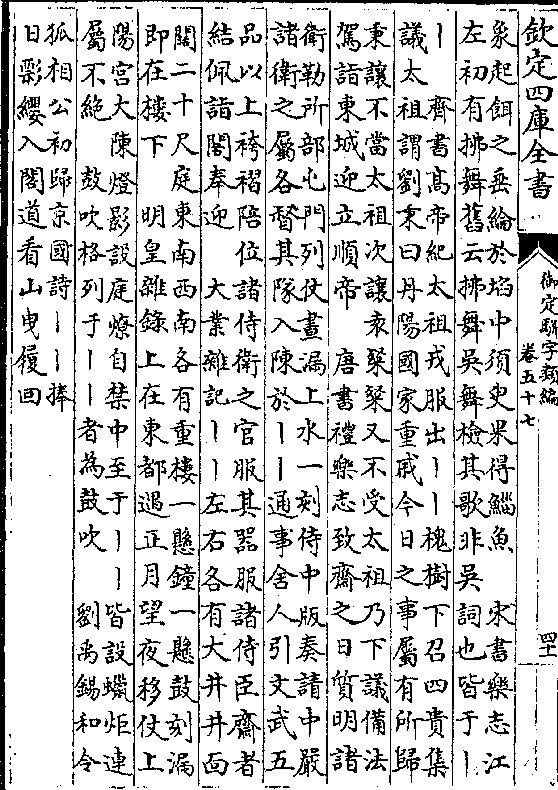 欽定四庫全書
御定駢字類編
卷五十七
四十一
象起餌之垂綸於埳中須臾果得鯔魚　宋書樂志江
左初有拂舞舊云拂舞吳舞檢其歌非吳詞也皆于丨
丨　齊書高帝紀太祖戎服出丨丨槐樹下召四貴集
議太祖謂劉秉曰丹陽國家重戚今日之事屬有所歸
秉讓不當太祖次讓袁粲粲又不受太祖乃下議備法
駕詣東城迎立順帝　唐書禮樂志致齋之日質明諸
衛勒所部屯門列仗晝漏上水一刻侍中版奏請中嚴
諸衛之屬各督其隊入陳於丨丨通事舍人引文武五
品以上袴褶陪位諸侍衛之官服其器服諸侍臣齋者
結佩詣閤奉迎　大業雜記丨丨左右各有大井井面
闊二十尺庭東南西南各有重樓一懸鐘一懸鼓刻漏
即在樓下　明皇雜錄上在東都遇正月望夜移仗上
陽宮大陳燈影設庭燎自禁中至于丨丨皆設蠟炬連
屬不絶　鼓吹格列于丨丨者為鼓吹　劉禹錫和令
狐相公初歸京國詩丨丨捧
日彯纓入閣道看山曳履回